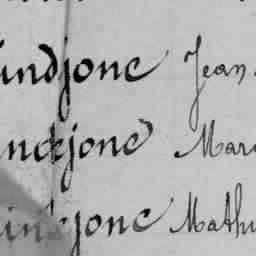 undjone Jean
ndjone Mar
injone Mathu